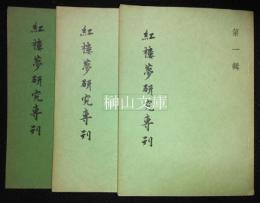 第一輯
紅樓夢研究專刊
紅樓夢研究專刊
紅樓夢研究專刊
榊山文庫